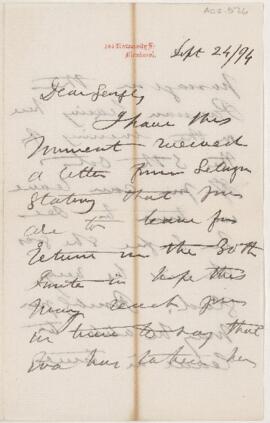 Acc. 526
University St
Montreal.
Sept 24/94
Dear
I have this
moment received
a letter from
stating that you
are to leave for
return on the 30th
I write in hope this
may reach you
in time to say that
has taken her